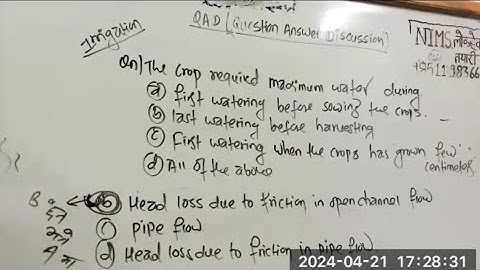 Irrigation
QAD (Question Answer Discussion)
NIMS
Qn) The crop required maximum water during
(a) first watering before sowing the crops.
(b) last watering before harvesting
(c) First watering when the crops has grown few centimeters
(d) All of the above
(b) Head loss due to friction in open channel flow
(c) pipe flow
(d) Head loss due to friction in pipe flow
2024-04-21 17:28:31